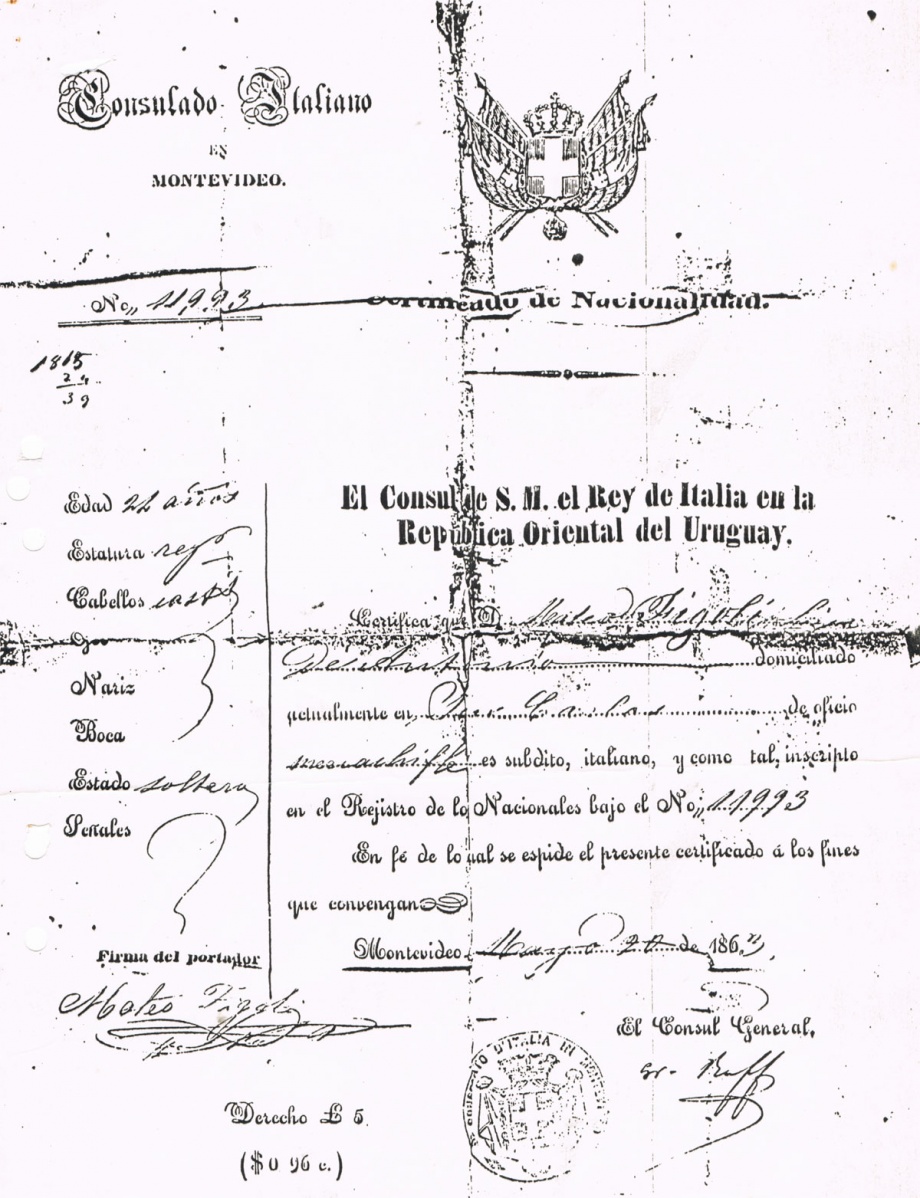 Consulado Italiano
EN
MONTEVIDEO.
No,, 11,993
Certificado de Nacionalidad.
1815
24
39
El Consul de S. M. el Rey de Italia en la
República Oriental del Uruguay.
Edad años
Estatura regr
Cabellos casts
Nariz
Boca
Estado soltero
Señales
Certifica que D. Mateo Figoli
De Antonio domiciliado
actualmente en de oficio
es subdito, italiano, y como tal, inscripto
en el Rejistro de lo Nacionales bajo el No,, 11993
En fé de lo ual se espide el presente certificado á los fines
que convengan
Montevideo Mayo 20 de 1863
Firma del portador
Mateo Figoli
El Consul General,
Derecho £ 5
($ 0 96 c.)
CONSOLATO D'ITALIA IN